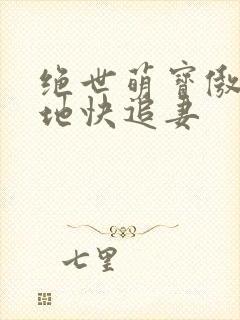 绝世萌宝傲
地快追妻
七里